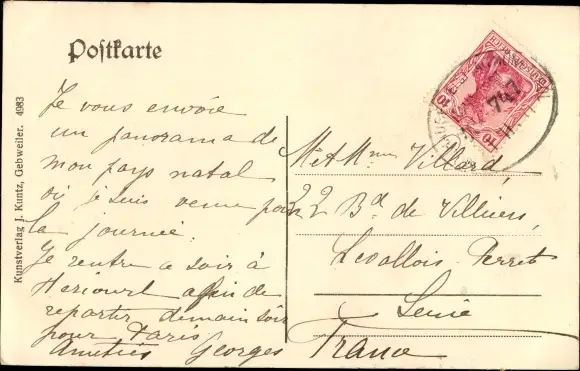 Postkarte
Kunstverlag J. Kuntz, Gebweiler. 4983
Je vous envoie
un panorama de
mon pays natal
où je suis venu pour
la journée.
Je rentre ce soir à
Héricourt afin de
repartir demain soir
pour Paris
Amitiés Georges
M. et Mme Villard,
22 Bd de Villiers,
Levallois-Perret
Seine
France
10
10
747